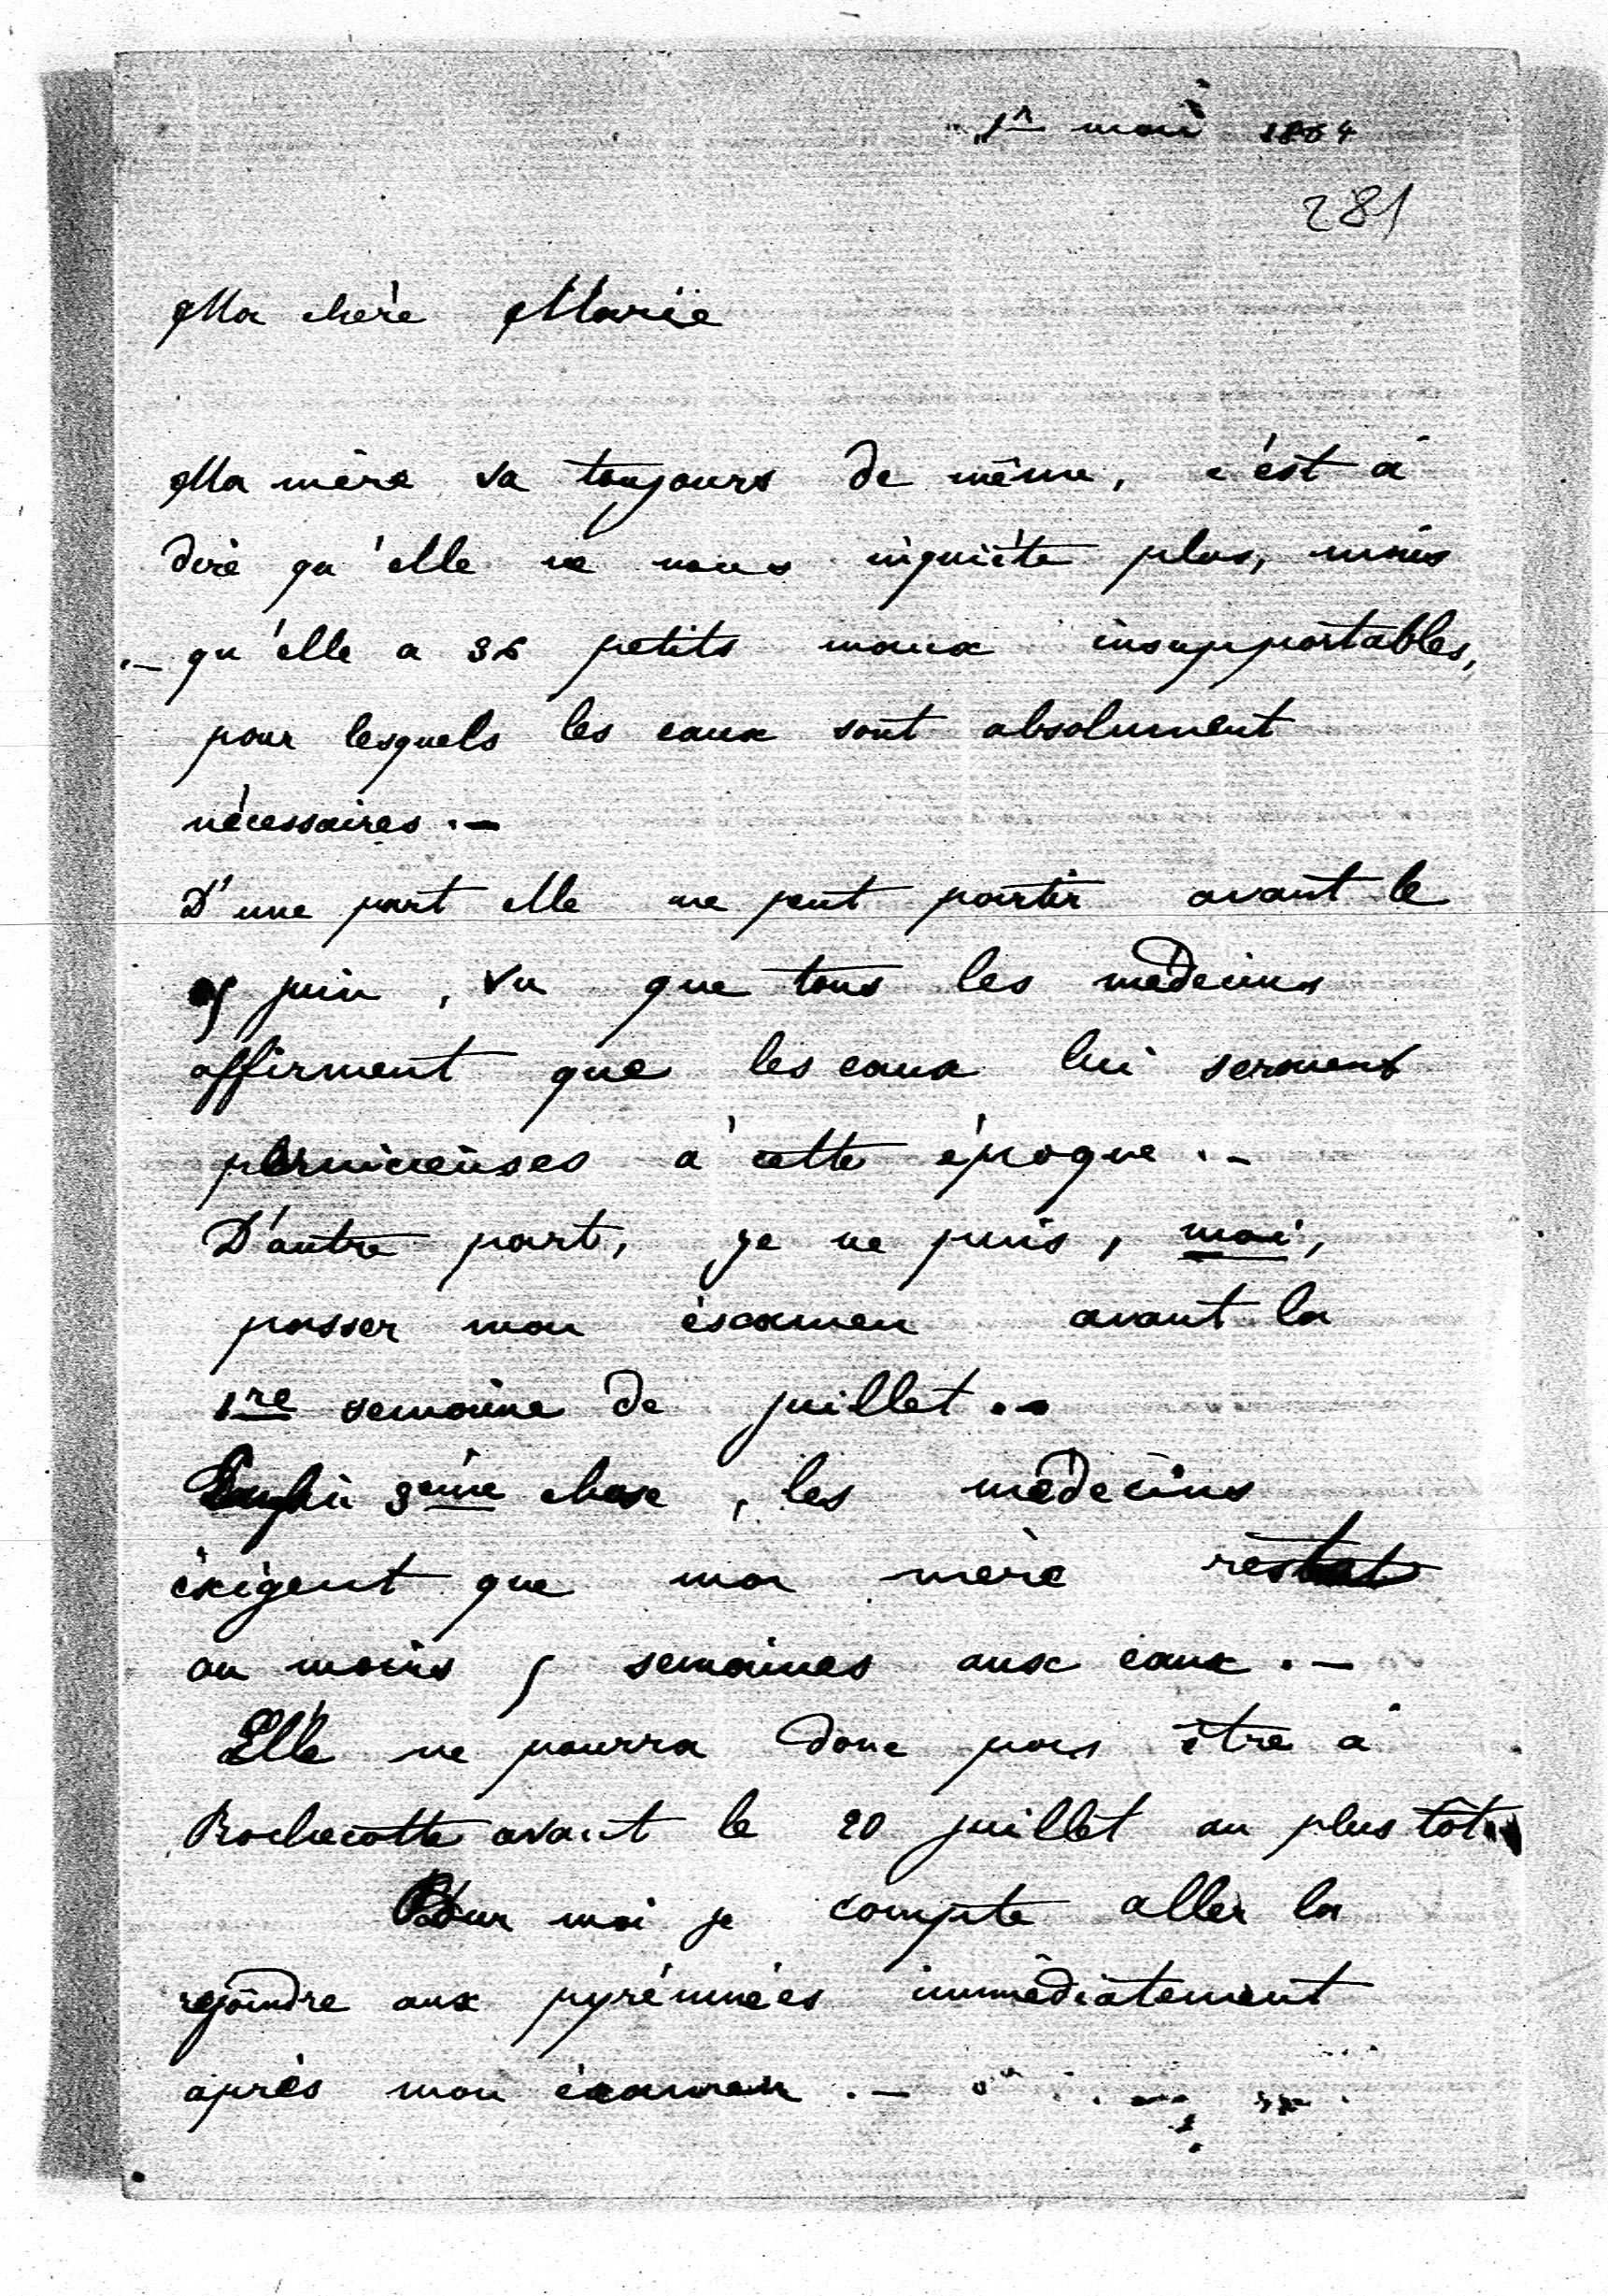 1er mai 1864
281
Ma chère Marie
Ma mère va toujours de même, c'est à
dire qu'elle ne nous inquiète plus, mais
qu'elle a 36 petits maux insupportables,
pour lesquels les eaux sont absolument
nécessaires .-
D'une part elle ne peut partir avant le
5 juin, vu que tous les médecins
affirment que les eaux lui seraient
pernicieuses à cette époque .-
D'autre part, je ne puis, moi,
passer mon éxamen avant la
1re semaine de juillet .-
Enfin 3ème chose, les médecins
éxigent que ma mère reste
au moins 5 semaines aux eaux .-
Elle ne pourra donc pas être à
Rochecotte avant le 20 juillet au plus tôt
Pour moi je compte aller la
rejoindre aux pyrénnées immédiatement
après mon éxamen .-